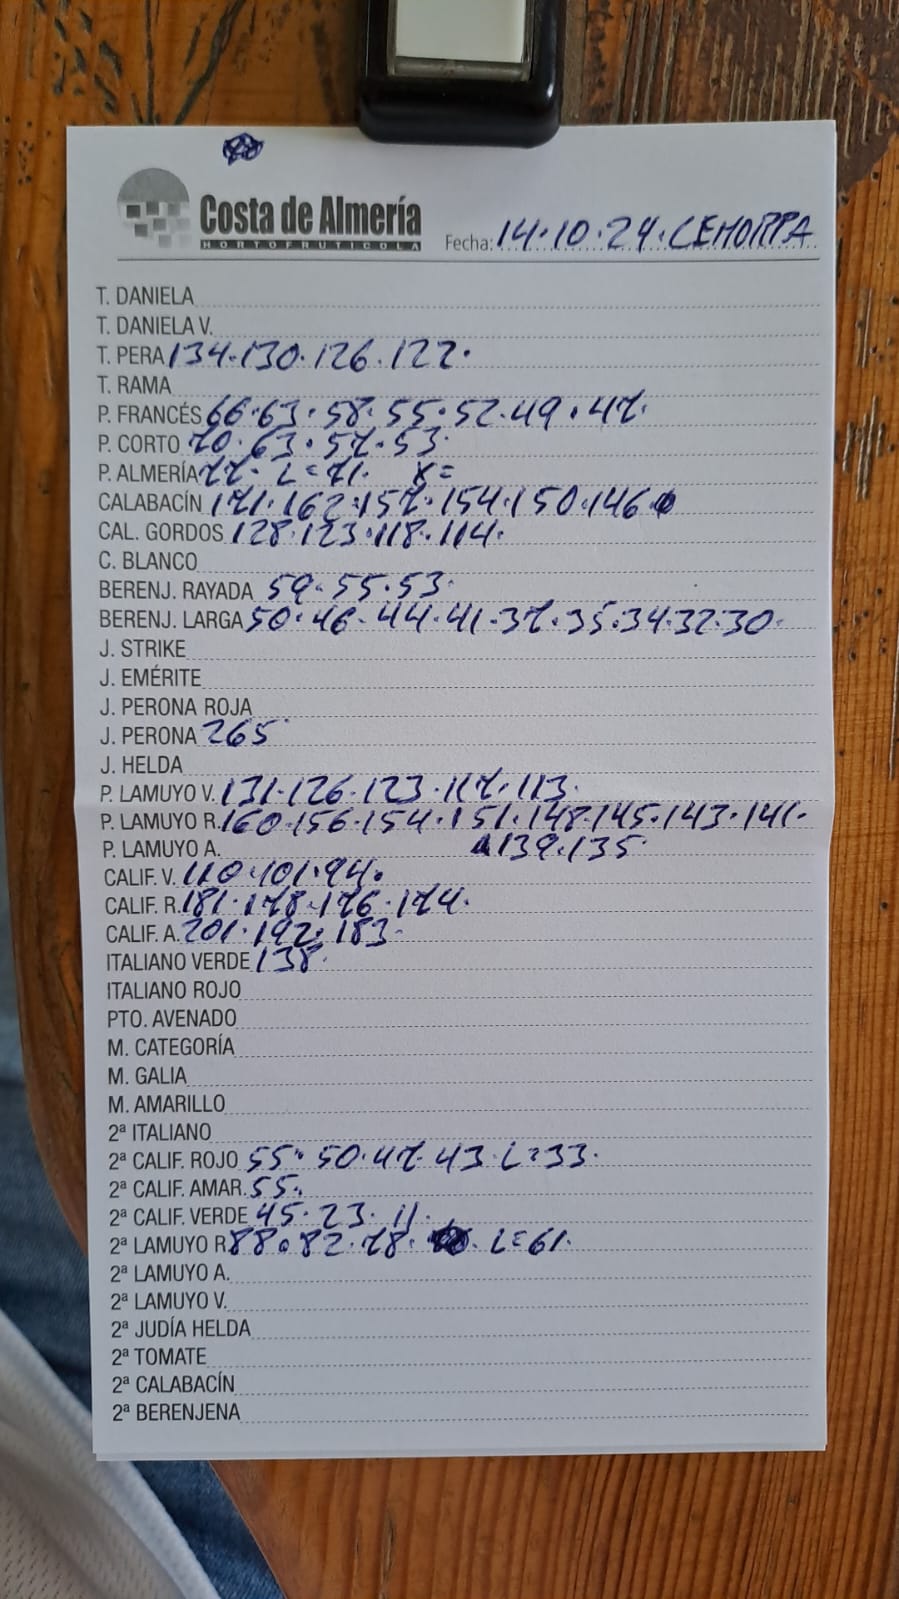 Costa de Almería
HORTOFRUTICOLA
Fecha: 14.10.24. CEHORPA
T. DANIELA
T. DANIELA V.
T. PERA 134.130.126.122.
T. RAMA
P. FRANCÉS 66.63.58.55.52.49.47.
P. CORTO 70.63.57.53.
P. ALMERÍA 77. L=71. K=
CALABACÍN 171.162.157.154.150.146
CAL. GORDOS 128.123.118.114.
C. BLANCO
BERENJ. RAYADA 59.55.53.
BERENJ. LARGA 50.46.44.41.37.35.34.32.30.
J. STRIKE
J. EMÉRITE
J. PERONA ROJA
J. PERONA 265
J. HELDA
P. LAMUYO V. 131.126.123.117.113.
P. LAMUYO R. 160.156.154.151.148.145.143.141.
P. LAMUYO A. 139.135
CALIF. V. 110.101.94.
CALIF. R. 181.178.176.174.
CALIF. A. 201.192.183.
ITALIANO VERDE 138.
ITALIANO ROJO
PTO. AVENADO
M. CATEGORÍA
M. GALIA
M. AMARILLO
2ª ITALIANO
2ª CALIF. ROJO 55.50.47.43. L=33.
2ª CALIF. AMAR. 55.
2ª CALIF. VERDE 45.23.11.
2ª LAMUYO R 88.82.78. L=61.
2ª LAMUYO A.
2ª LAMUYO V.
2ª JUDÍA HELDA
2ª TOMATE
2ª CALABACÍN
2ª BERENJENA